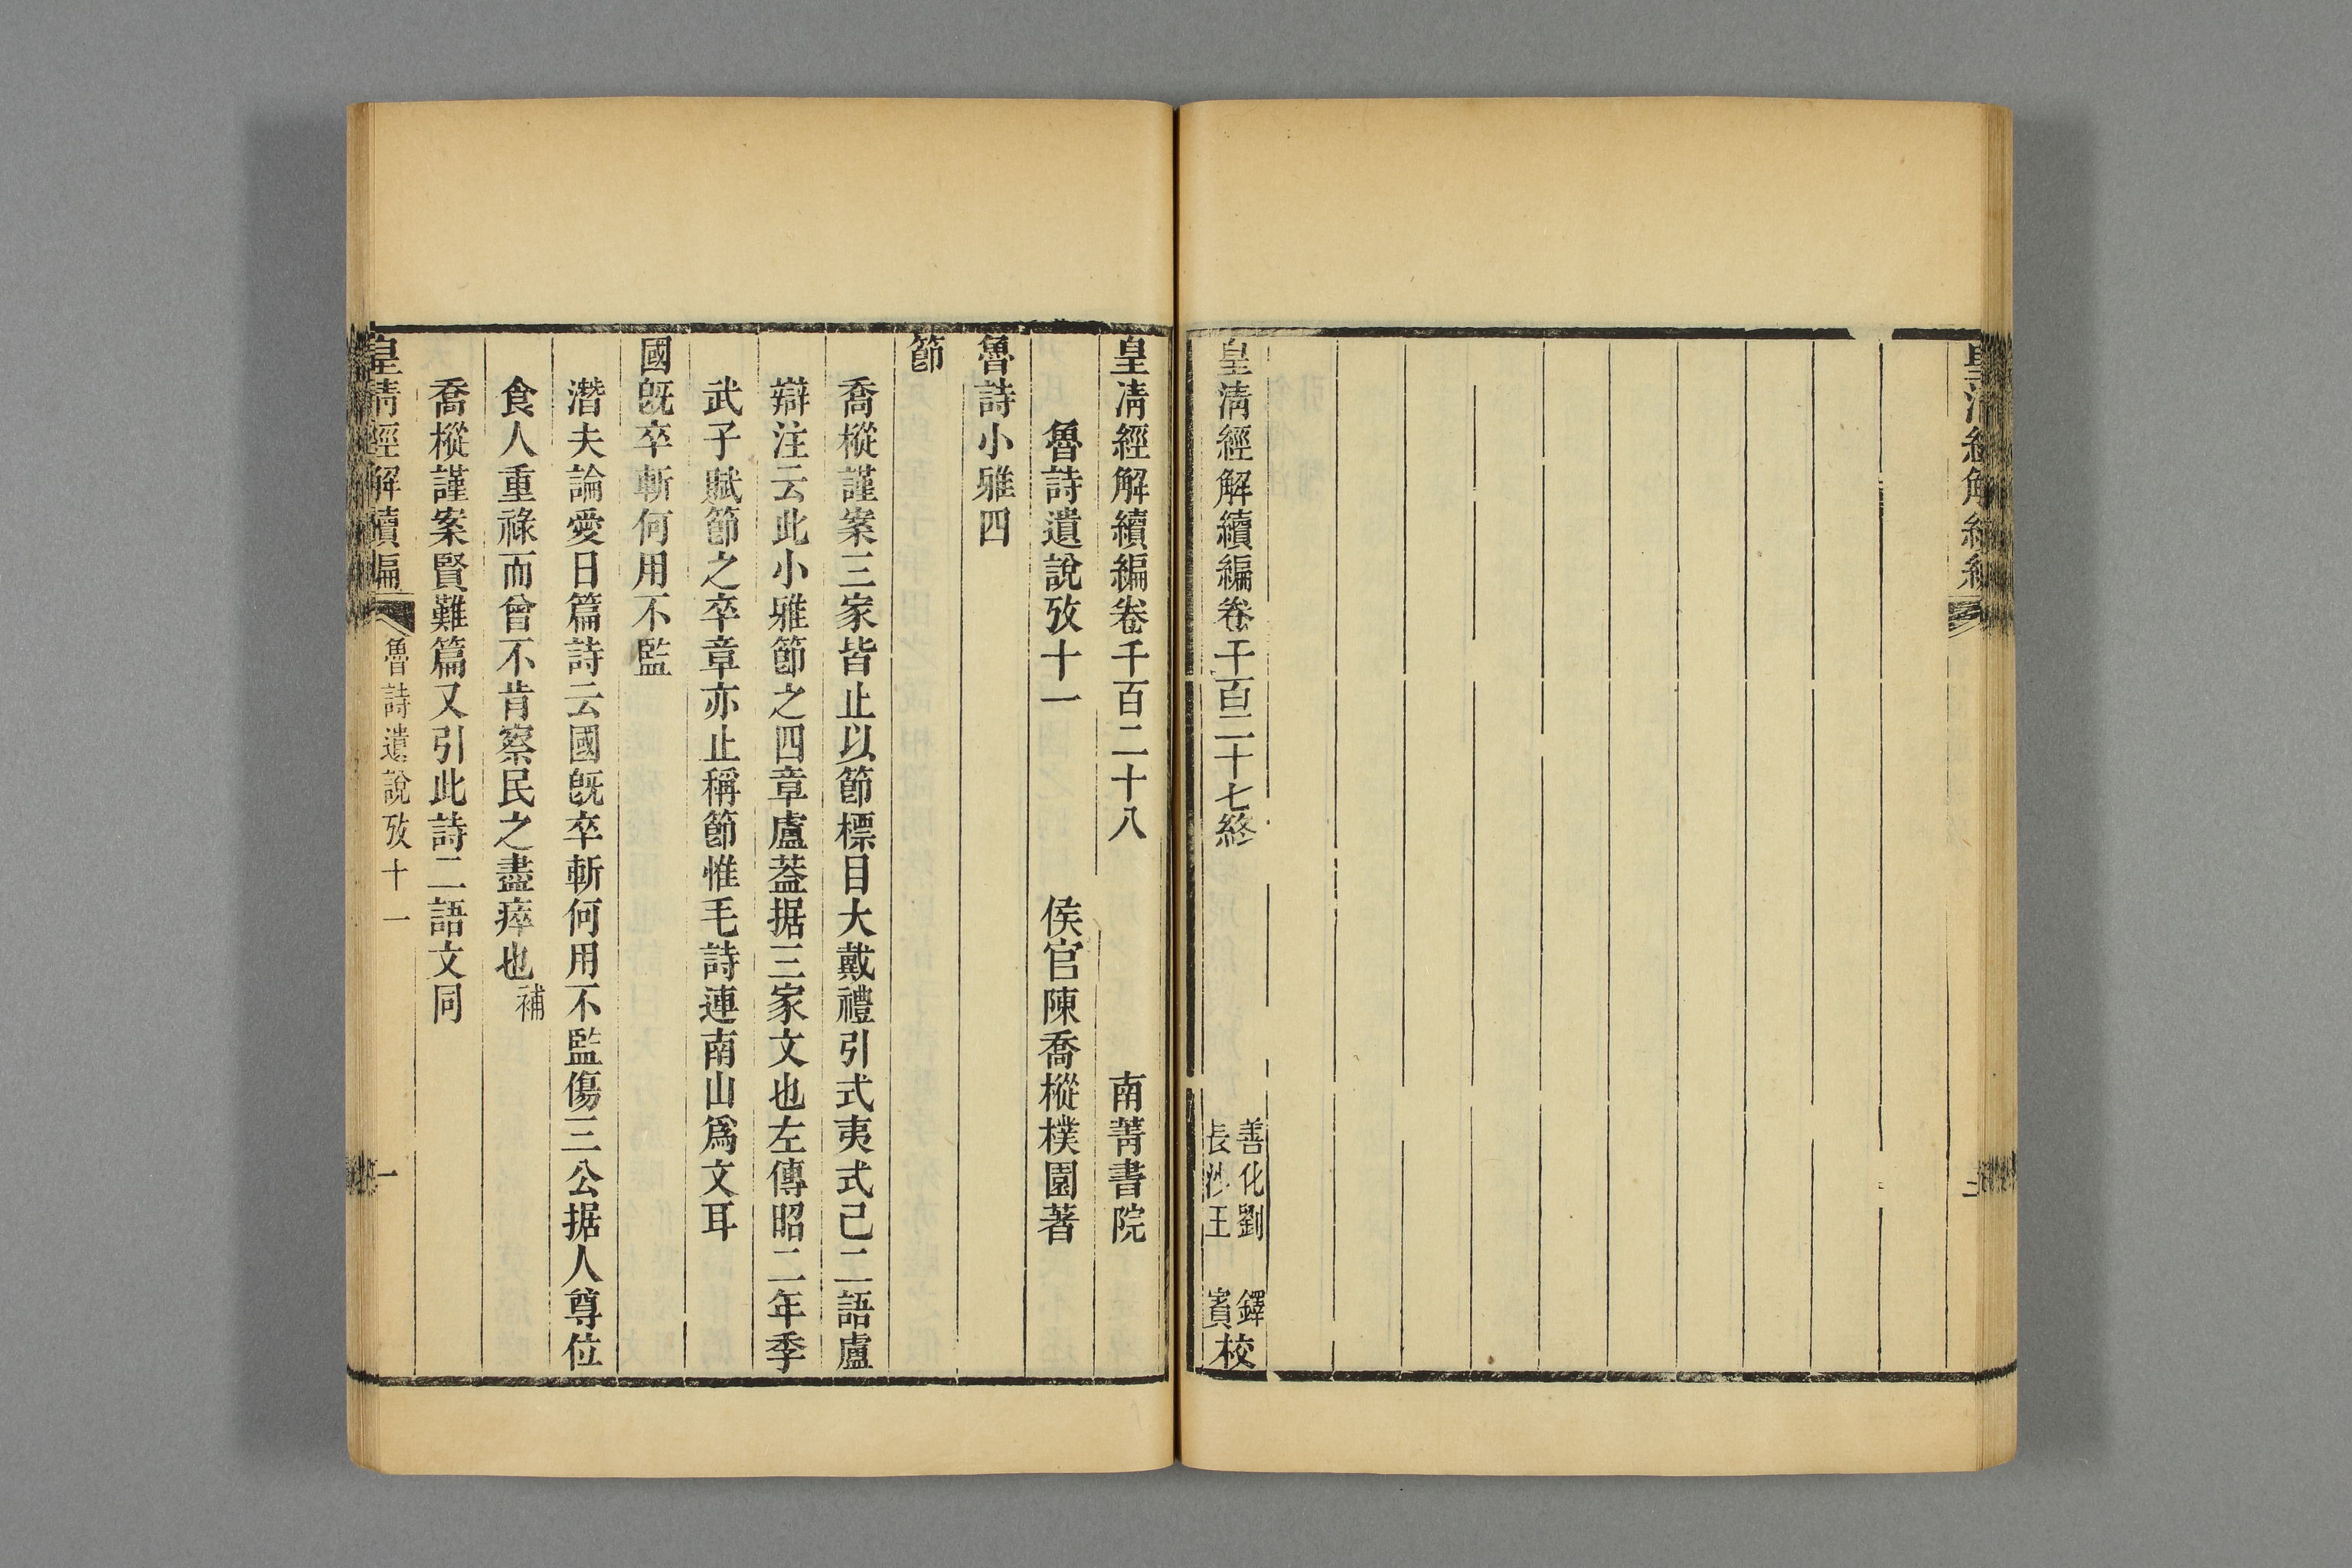 皇清經解續編
三
皇清經解續編卷千百二十七終
善化劉 鐸
長沙王 賓
校
皇清經解續編卷千百二十八 南菁書院
魯詩遺說攷十一 侯官陳喬樅樸園著
魯詩小雅四
節
喬樅謹案三家皆止以節標目大戴禮引式夷式已二語盧
辯注云此小雅節之四章盧葢据三家文也左傳昭二年季
武子賦節之卒章亦止稱節惟毛詩連南山爲文耳
國旣卒斬何用不監
潛夫論愛日篇詩云國旣卒斬何用不監傷三公据人尊位
食人重祿而曾不肯察民之盡瘁也補
喬樅謹案賢難篇又引此詩二語文同
皇清經解續編 魯詩遺說攷十一 一